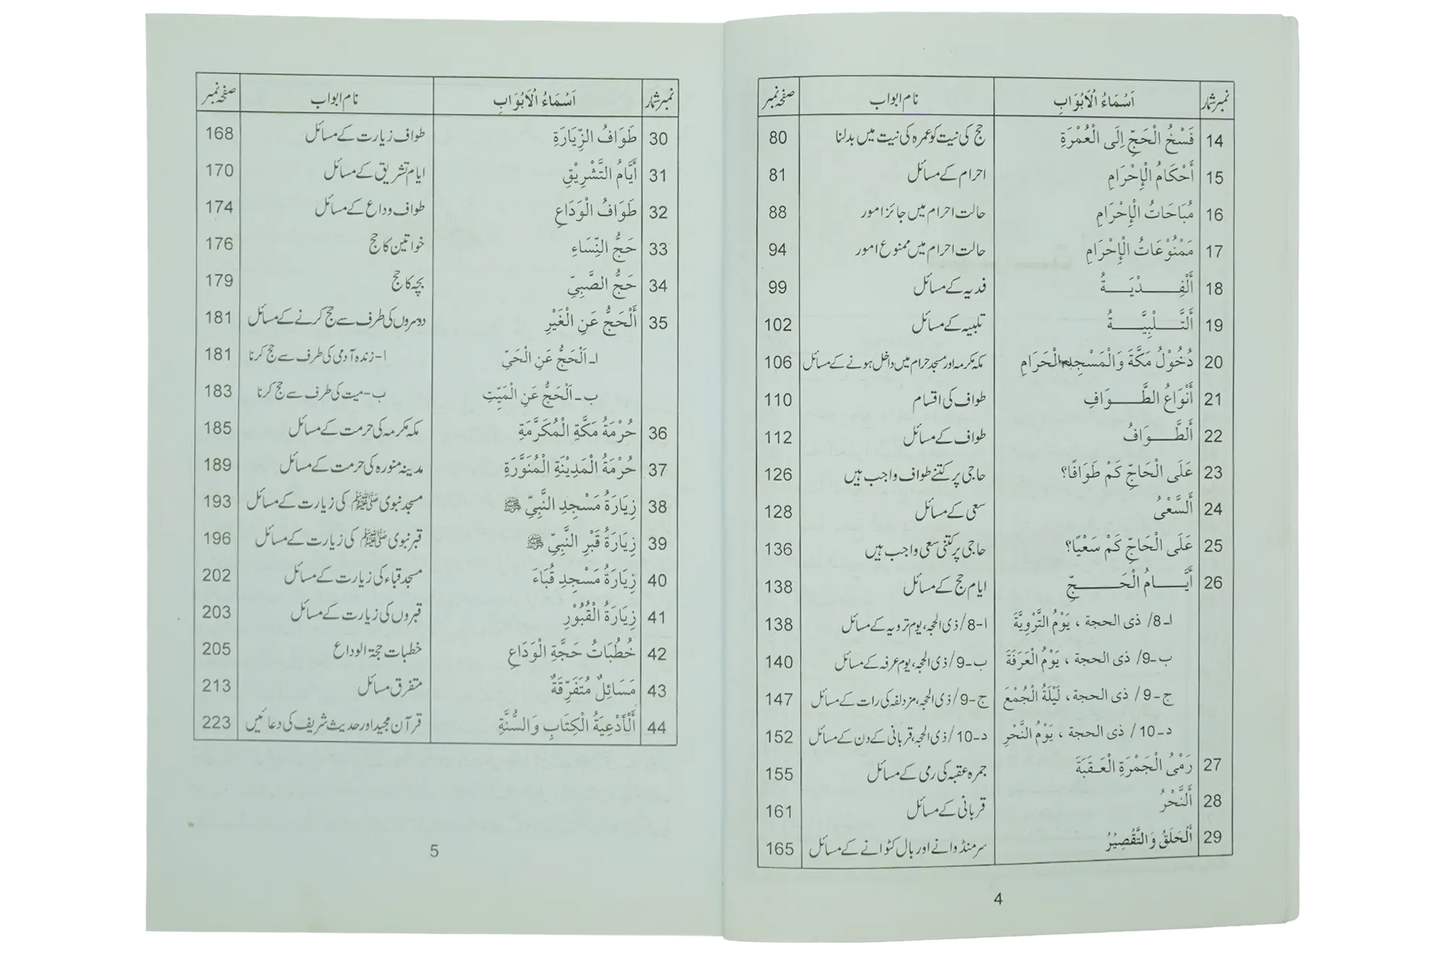 نمبر شمار اَسْمَاءُ الْاَبْوَابِ نام ابواب صفحہ نمبر
14 فَسْخُ الْحَجِّ اِلَى الْعُمْرَةِ حج کی نیت کو عمرہ کی نیت میں بدلنا 80
15 أَحْكَامُ الْإِحْرَامِ احرام کے مسائل 81
16 مُبَاحَاتُ الْإِحْرَامِ حالت احرام میں جائز امور 88
17 مَمْنُوْعَاتُ الْإِحْرَامِ حالت احرام میں ممنوع امور 94
18 أَلْفِـــدْيَـــةُ فدیہ کے مسائل 99
19 أَلتَّـــلْبِيَّـــةُ تلبیہ کے مسائل 102
20 دُخُوْلُ مَكَّةَ وَالْمَسْجِدِ الْحَرَامِ مکہ مکرمہ اور مسجد حرام میں داخل ہونے کے مسائل 106
21 أَنْوَاعُ الطَّـــوَافِ طواف کی اقسام 110
22 أَلطَّـــوَافُ طواف کے مسائل 112
23 عَلَى الْحَاجِّ كَمْ طَوَافًا؟ حاجی پر کتنے طواف واجب ہیں 126
24 أَلسَّعْىُ سعی کے مسائل 128
25 عَلَى الْحَاجِّ كَمْ سَعْيًا؟ حاجی پر کتنی سعی واجب ہیں 136
26 أَيَّـــامُ الْحَـــجِّ ایام حج کے مسائل 138
ا-8/ ذی الحجة ، يَوْمُ التَّرْوِيَّةَ ا-8/ ذی الحجہ، یوم ترویہ کے مسائل 138
ب-9/ ذی الحجة ، يَوْمُ الْعَرَفَةَ ب-9/ ذی الحجہ، یوم عرفہ کے مسائل 140
ج-9/ ذی الحجة، لَيْلَةُ الْجُمْعَ ج-9/ ذی الحجہ، مزدلفہ کی رات کے مسائل 147
د-10/ ذی الحجة ، يَوْمُ النَّحْرِ د-10/ ذی الحجہ، قربانی کے دن کے مسائل 152
27 رَمْىُ الْجَمْرَةِ الْعَـقَبَةَ جمرہ عقبہ کی رمی کے مسائل 155
28 أَلنَّحْرُ قربانی کے مسائل 161
29 أَلْحَلَقُ وَالتَّقْصِيْرُ سر منڈوانے اور بال کٹوانے کے مسائل 165
4
نمبر شمار اَسْمَاءُ الْاَبْوَابِ نام ابواب صفحہ نمبر
30 طَوَافُ الزِّيَارَةِ طواف زیارت کے مسائل 168
31 أَيَّامُ التَّشْرِيْقِ ایام تشریق کے مسائل 170
32 طَوَافُ الْوَدَاعِ طواف وداع کے مسائل 174
33 حَجُّ النِّسَاءِ خواتین کا حج 176
34 حَجُّ الصَّبِيِّ بچہ کا حج 179
35 أَلْحَجُّ عَنِ الْغَيْرِ دوسروں کی طرف سے حج کرنے کے مسائل 181
ا-اَلْحَجُّ عَنِ الْحَيِّ ا-زندہ آدمی کی طرف سے حج کرنا 181
ب-اَلْحَجُّ عَنِ الْمَيِّتِ ب-میت کی طرف سے حج کرنا 183
36 حُرْمَةُ مَكَّةِ الْمُكَرَّمَةِ مکہ مکرمہ کی حرمت کے مسائل 185
37 حُرْمَةُ الْمَدِيْنَةِ الْمُنَوَّرَةِ مدینہ منورہ کی حرمت کے مسائل 189
38 زِيَارَةُ مَسْجِدِ النَّبِيِّ ﷺ مسجد نبوی ﷺ کی زیارت کے مسائل 193
39 زِيَارَةُ قَبْرِ النَّبِيِّ ﷺ قبر نبوی ﷺ کی زیارت کے مسائل 196
40 زِيَارَةُ مَسْجِدِ قُبَاءَ مسجد قباء کی زیارت کے مسائل 202
41 زِيَارَةُ الْقُبُوْرِ قبروں کی زیارت کے مسائل 203
42 خُطُبَاتُ حَجَّةِ الْوَدَاعِ خطبات حجۃ الوداع 205
43 مَسَائِلٌ مُتَفَرِّقَةٌ متفرق مسائل 213
44 أَلْأَدْعِيَةُ الْكِتَابِ وَالسُّنَّةِ قرآن مجید اور حدیث شریف کی دعائیں 223
5